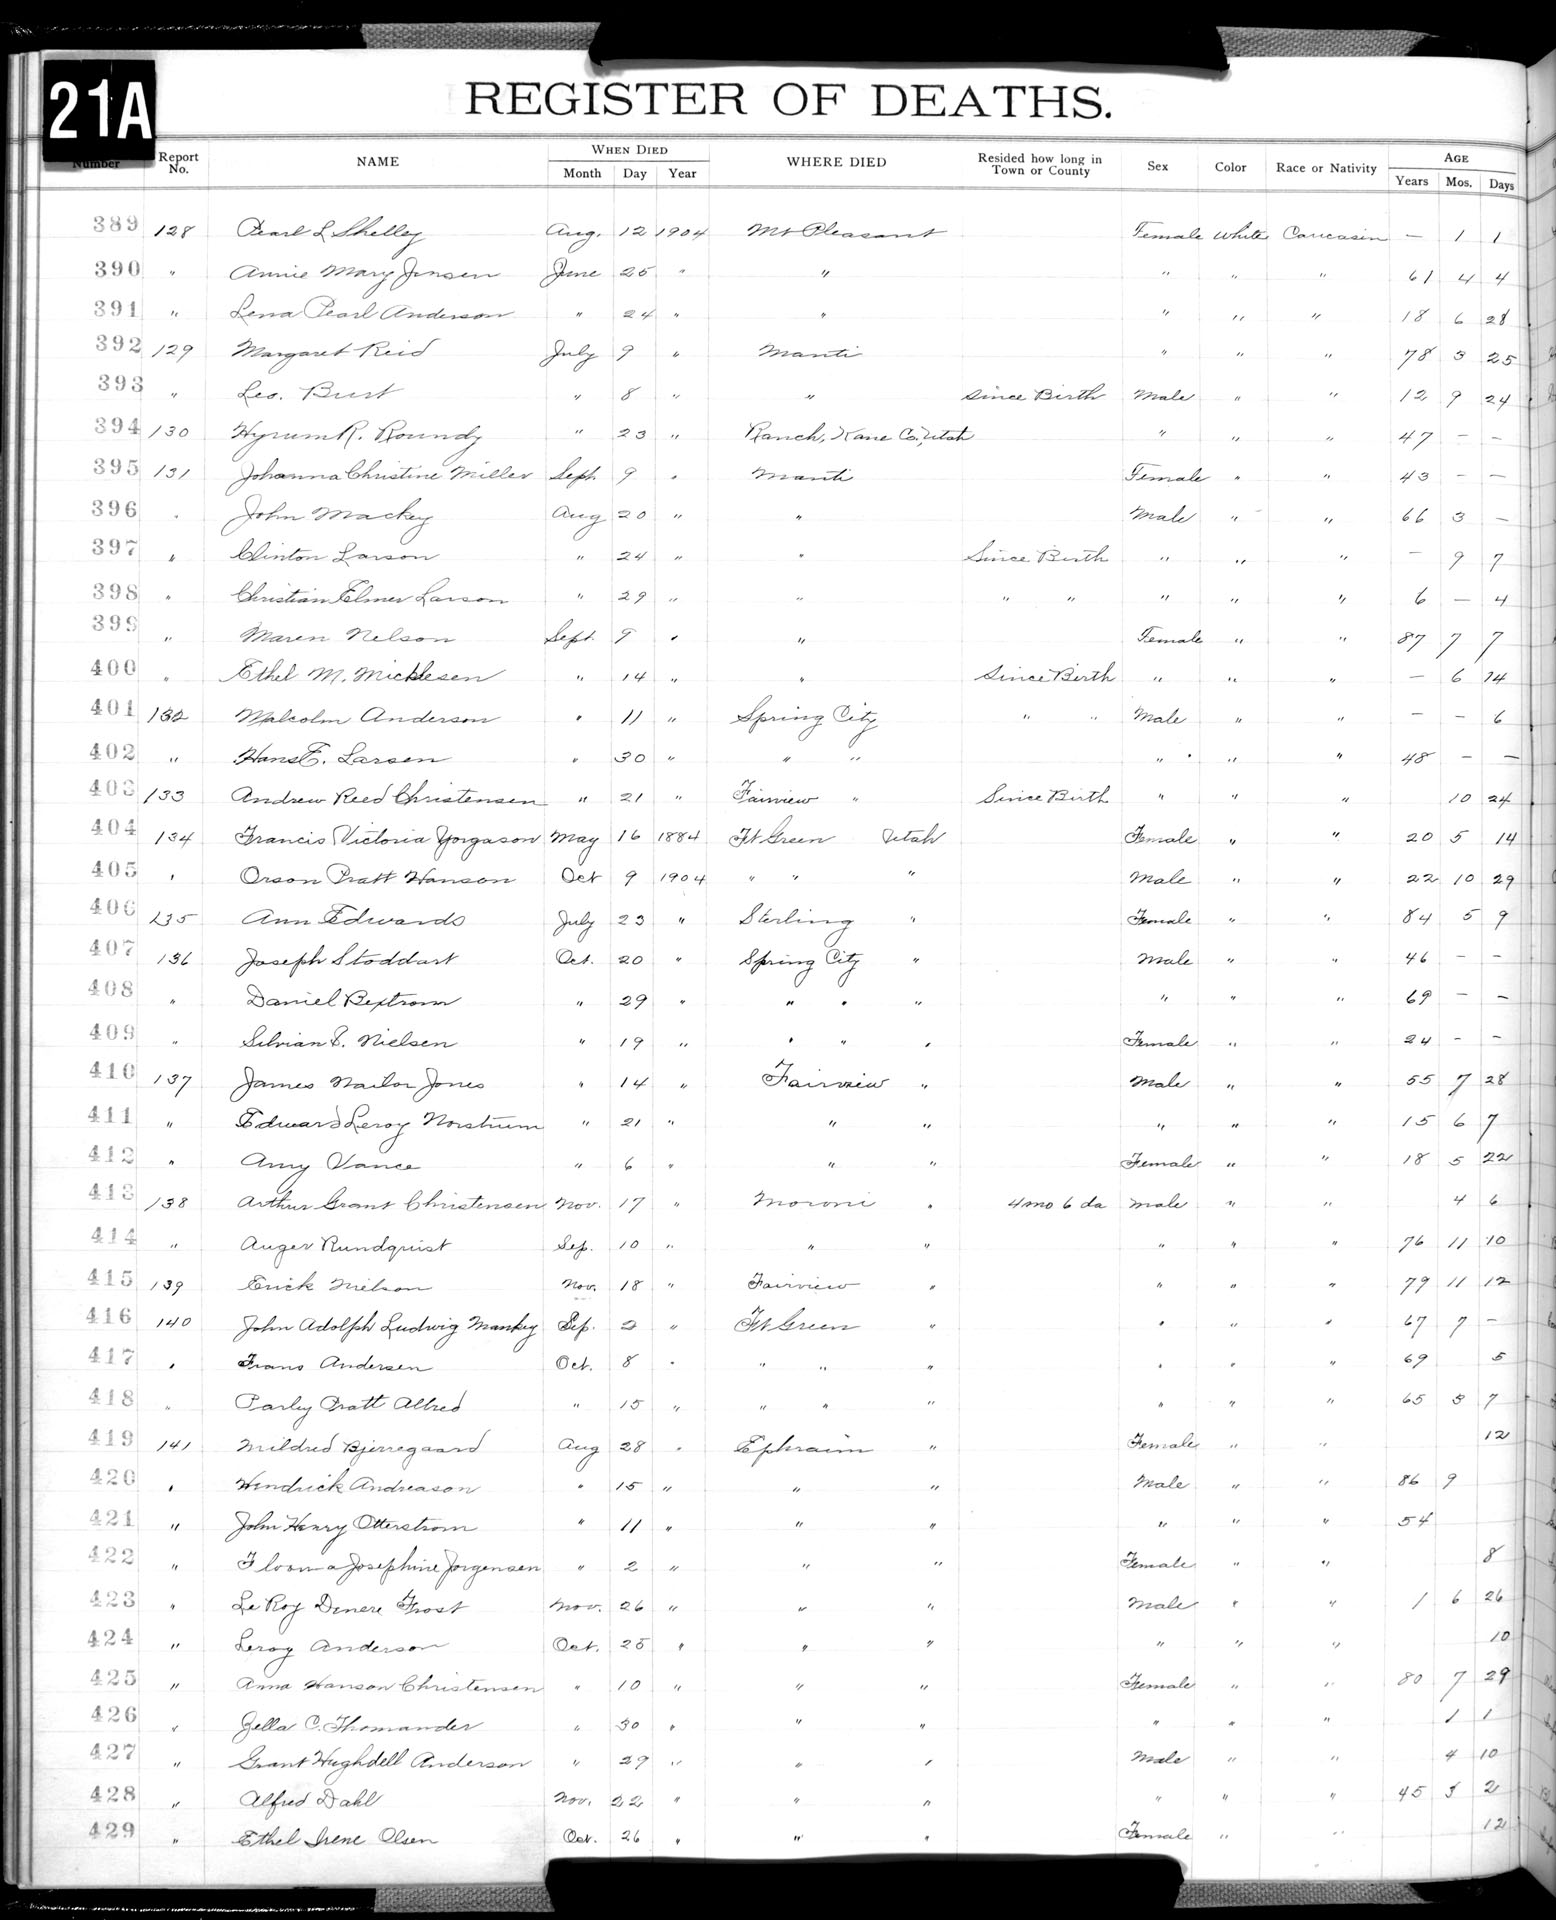 21A
REGISTER OF DEATHS.
Number Report No. NAME WHEN DIED Month Day Year WHERE DIED Resided how long in Town or County Sex Color Race or Nativity AGE Years Mos. Days
389 128 Pearl L Shelley Aug. 12 1904 Mt Pleasant Female White Caucasin — 1 1
390 " Annie Mary Jensen June 25 " " " " " 61 4 4
391 " Lena Pearl Anderson " 24 " " " " " 18 6 28
392 129 Margaret Reid July 9 " Manti " " " 78 3 25
393 " Leo. Burt " 8 " " Since Birth Male " " 12 9 24
394 130 Hyrum R. Roundy " 23 " Ranch, Kane Co., Utah " " " 47 — —
395 131 Johanna Christine Miller Sept 9 " Manti Female " " 43 — —
396 " John Mackey Aug 20 " " Male " " 66 3 —
397 " Clinton Larson " 24 " " Since Birth " " " — 9 7
398 " Christian Elmer Larson " 29 " " " " " " " 6 — 4
399 " Maren Nelson Sept. 9 " " Female " " 87 7 7
400 " Ethel M. Micklesen " 14 " " Since Birth " " " — 6 14
401 132 Malcolm Anderson " 11 " Spring City " " Male " " — — 6
402 " Hans E. Larsen " 30 " " " " " " 48 — —
403 133 Andrew Reed Christensen " 21 " Fairview " Since Birth " " " 10 24
404 134 Francis Victoria Yorgason May 16 1884 Ft Green Utah Female " " 20 5 14
405 " Orson Pratt Hanson Oct 9 1904 " " " Male " " 22 10 29
406 135 Ann Edwards July 23 " Sterling " Female " " 84 5 9
407 136 Joseph Stoddart Oct. 20 " Spring City " Male " " 46 — —
408 " Daniel Bextrom " 29 " " " " " " " 69 — —
409 " Silvian E. Nielsen " 19 " " " " Female " " 24 — —
410 137 James Nailor Jones " 14 " Fairview " Male " " 55 7 28
411 " Edward Leroy Norstrum " 21 " " " " " " 15 6 7
412 " Amy Vance " 6 " " " Female " " 18 5 22
413 138 Arthur Grant Christensen Nov. 17 " Moroni " 4 mo 6 da Male " " 4 6
414 " Auger Rundquist Sep. 10 " " " " " " 76 11 10
415 139 Erick Nielson Nov. 18 " Fairview " " " " 79 11 12
416 140 John Adolph Ludwig Mankey Sep. 2 " Ft Green " " " " 67 7 —
417 " Frans Andersen Oct. 8 " " " " " " " 69 5
418 " Parley Pratt Allred " 15 " " " " " " " 65 3 7
419 141 Mildred Bjerregaard Aug 28 " Ephraim " Female " " 12
420 " Hendrick Andreason " 15 " " " Male " " 86 9
421 " John Henry Otterstrom " 11 " " " " " " 54
422 " Floona Josephine Jorgensen " 2 " " " Female " " 8
423 " Le Roy Denere Frost Nov. 26 " " " Male " " 1 6 26
424 " Leroy Anderson Oct. 25 " " " " " " 10
425 " Anna Hanson Christensen " 10 " " " Female " " 80 7 29
426 " Zella C. Thomander " 30 " " " " " " 1 1
427 " Grant Hughdell Anderson " 29 " " " Male " " 4 10
428 " Alfred Dahl Nov. 22 " " " " " " 45 3 2
429 " Ethel Irene Olsen Oct. 26 " " " Female " " 12